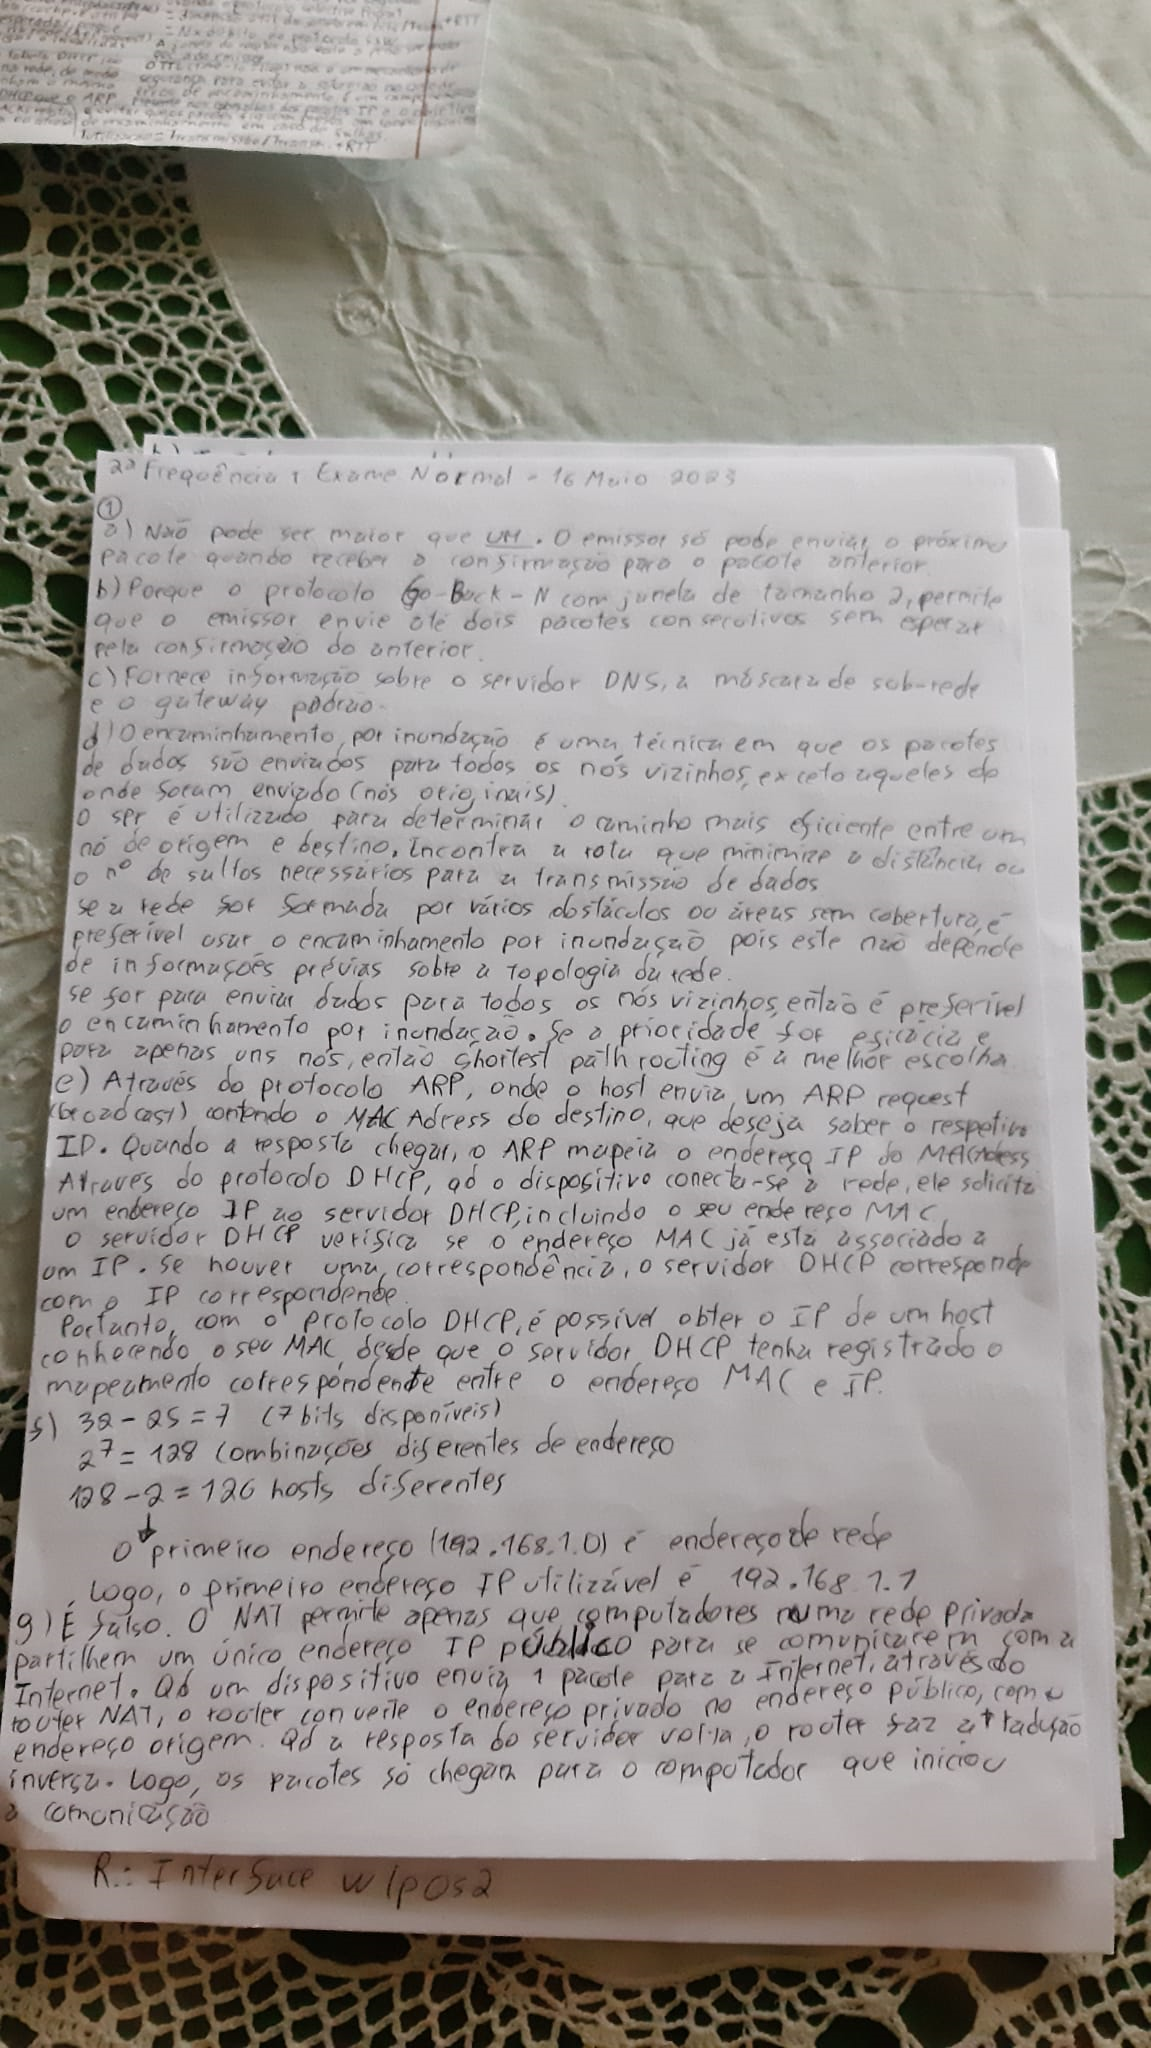 = Nx débito do protocolo S&W
segurança para evitar a
Tutilização = Ttransmissão/Ttransm. + RTT
2ª Frequência, Exame Normal - 16 Maio 2023
①
a) Não pode ser maior que UM. O emissor só pode enviar o próximo
pacote quando receber a confirmação para o pacote anterior.
b) Porque o protocolo Go-Back-N com janela de tamanho 2, permite
que o emissor envie até dois pacotes consecutivos sem esperar
pela confirmação do anterior.
c) Fornece informação sobre o servidor DNS, a máscara de sub-rede
e o gateway padrão.
d) O encaminhamento por inundação é uma técnica em que os pacotes
de dados são enviados para todos os nós vizinhos, exceto aqueles de
onde foram enviado (nós originais).
O spr é utilizado para determinar o caminho mais eficiente entre um
nó de origem e destino. Incontra a rota que minimize a distância ou
o nº de saltos necessários para a transmissão de dados
se a rede for formada por vários obstáculos ou áreas sem cobertura, é
preferível usar o encaminhamento por inundação pois este não depende
de informações prévias sobre a topologia da rede.
se for para enviar dados para todos os nós vizinhos, então é preferível
o encaminhamento por inundação. Se a prioridade for eficácia e
para apenas uns nós, então shortest path routing é a melhor escolha
e) Através do protocolo ARP, onde o host envia um ARP request
(broadcast) contendo o MAC Adress do destino, que deseja saber o respetivo
ID. Quando a resposta chegar, o ARP mapeia o endereço IP do MAC Adess
Através do protocolo DHCP, qd o dispositivo conecta-se à rede, ele solicita
um endereço IP ao servidor DHCP, incluindo o seu endereço MAC.
O servidor DHCP verifica se o endereço MAC já está associado a
um IP. Se houver uma correspondência, o servidor DHCP corresponde
com o IP correspondende.
Portanto, com o protocolo DHCP, é possível obter o IP de um host
conhecendo o seu MAC, desde que o servidor DHCP tenha registrado o
mapeamento correspondente entre o endereço MAC e IP.
f) 32 - 25 = 7 (7 bits disponíveis)
2⁷ = 128 combinações diferentes de endereço
128 - 2 = 126 hosts diferentes
↓
O primeiro endereço (192.168.1.0) é endereço de rede
Logo, o primeiro endereço IP utilizável é 192.168.1.1
g) É falso. O NAT permite apenas que computadores numa rede privada
partilhem um único endereço IP público para se comunicarem com a
Internet. Qd um dispositivo envia 1 pacote para a Internet, através do
router NAT, o router converte o endereço privado no endereço público, como
endereço origem. Qd a resposta do servidor volta, o router faz a tradução
inversa. Logo, os pacotes só chegam para o computador que iniciou
a comunicação
R.: Interface wlp0s2